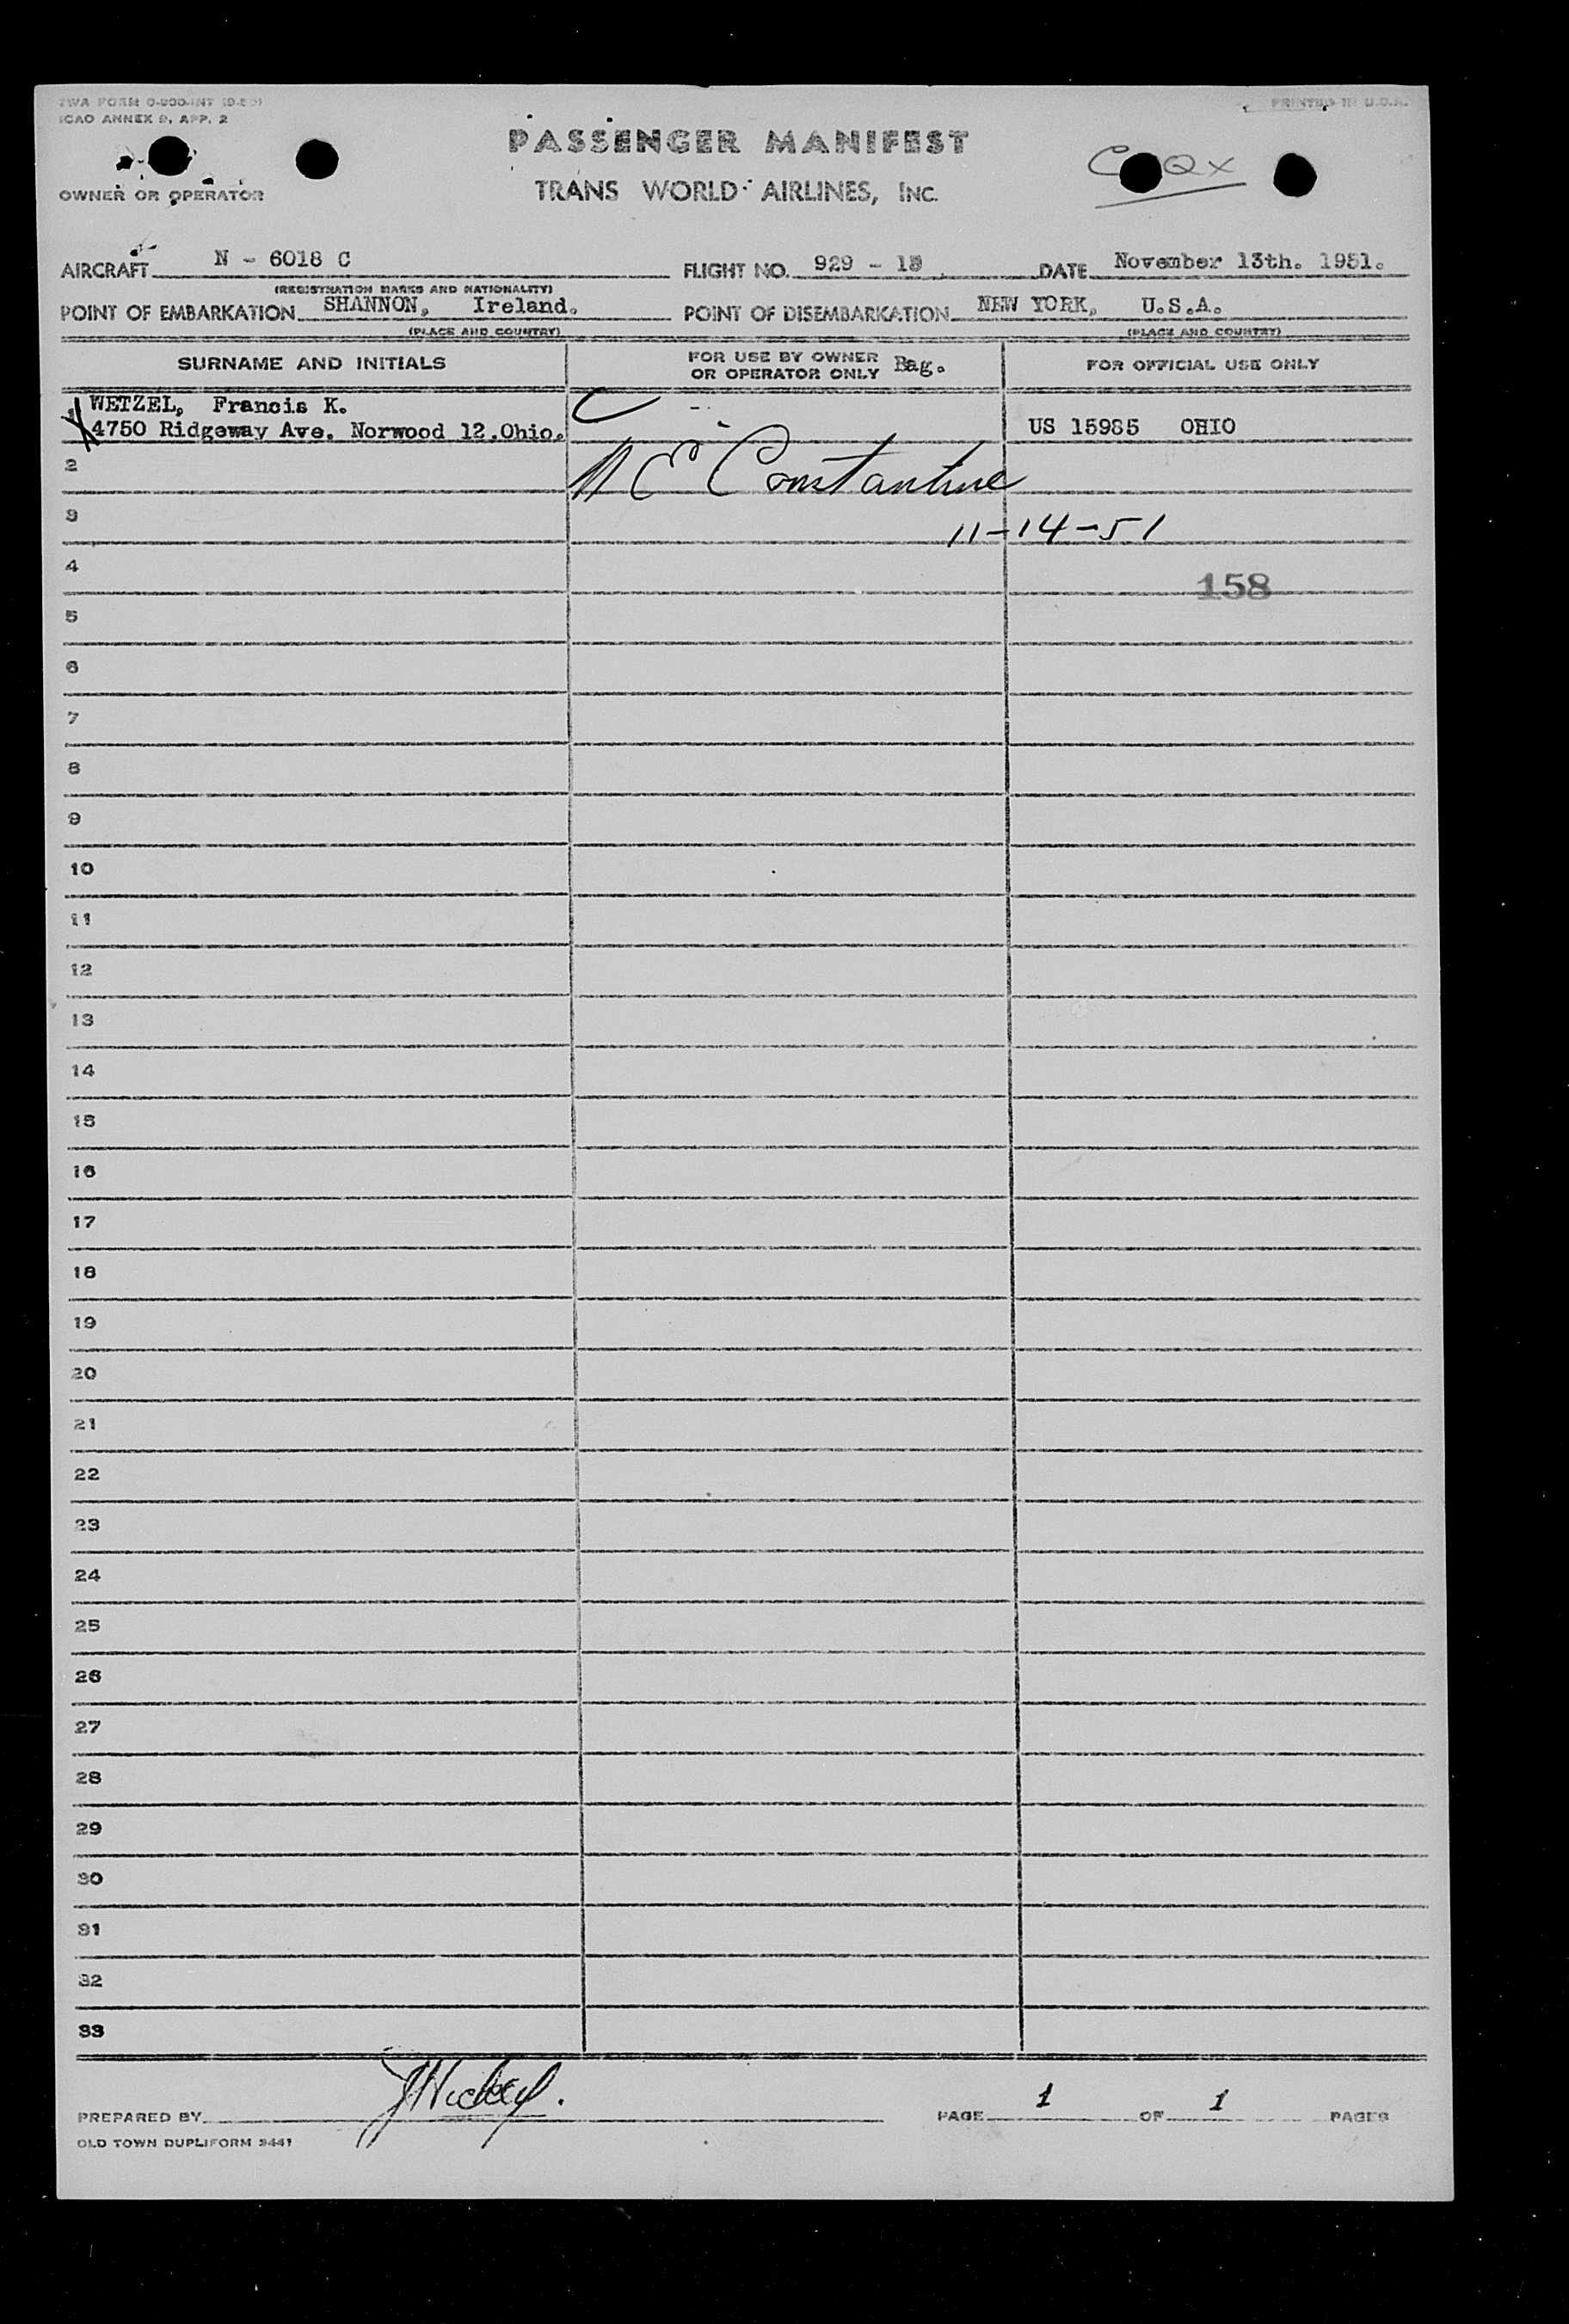 TWA FORM 0-900-INT
ICAO ANNEX 9, APP. 2
PRINTED IN U.S.A.
PASSENGER MANIFEST
OWNER OR OPERATOR
TRANS WORLD AIRLINES, INC.
AIRCRAFT N - 6018 C FLIGHT NO. 929 - DATE November 13th. 1951.
(REGISTRATION MARKS AND NATIONALITY)
POINT OF EMBARKATION SHANNON, Ireland. POINT OF DISEMBARKATION NEW YORK, U.S.A.
(PLACE AND COUNTRY) (PLACE AND COUNTRY)
SURNAME AND INITIALS FOR USE BY OWNER OR OPERATOR ONLY Bag. FOR OFFICIAL USE ONLY
WETZEL, Francis K.
4750 Ridgeway Ave. Norwood 12.Ohio. US 15985 OHIO
2 E Constantine
3 11-14-51
4 158
5
6
7
8
9
10
11
12
13
14
15
16
17
18
19
20
21
22
23
24
25
26
27
28
29
30
31
32
33
PREPARED BY PAGE 1 OF 1 PAGES
OLD TOWN DUPLIFORM 9441